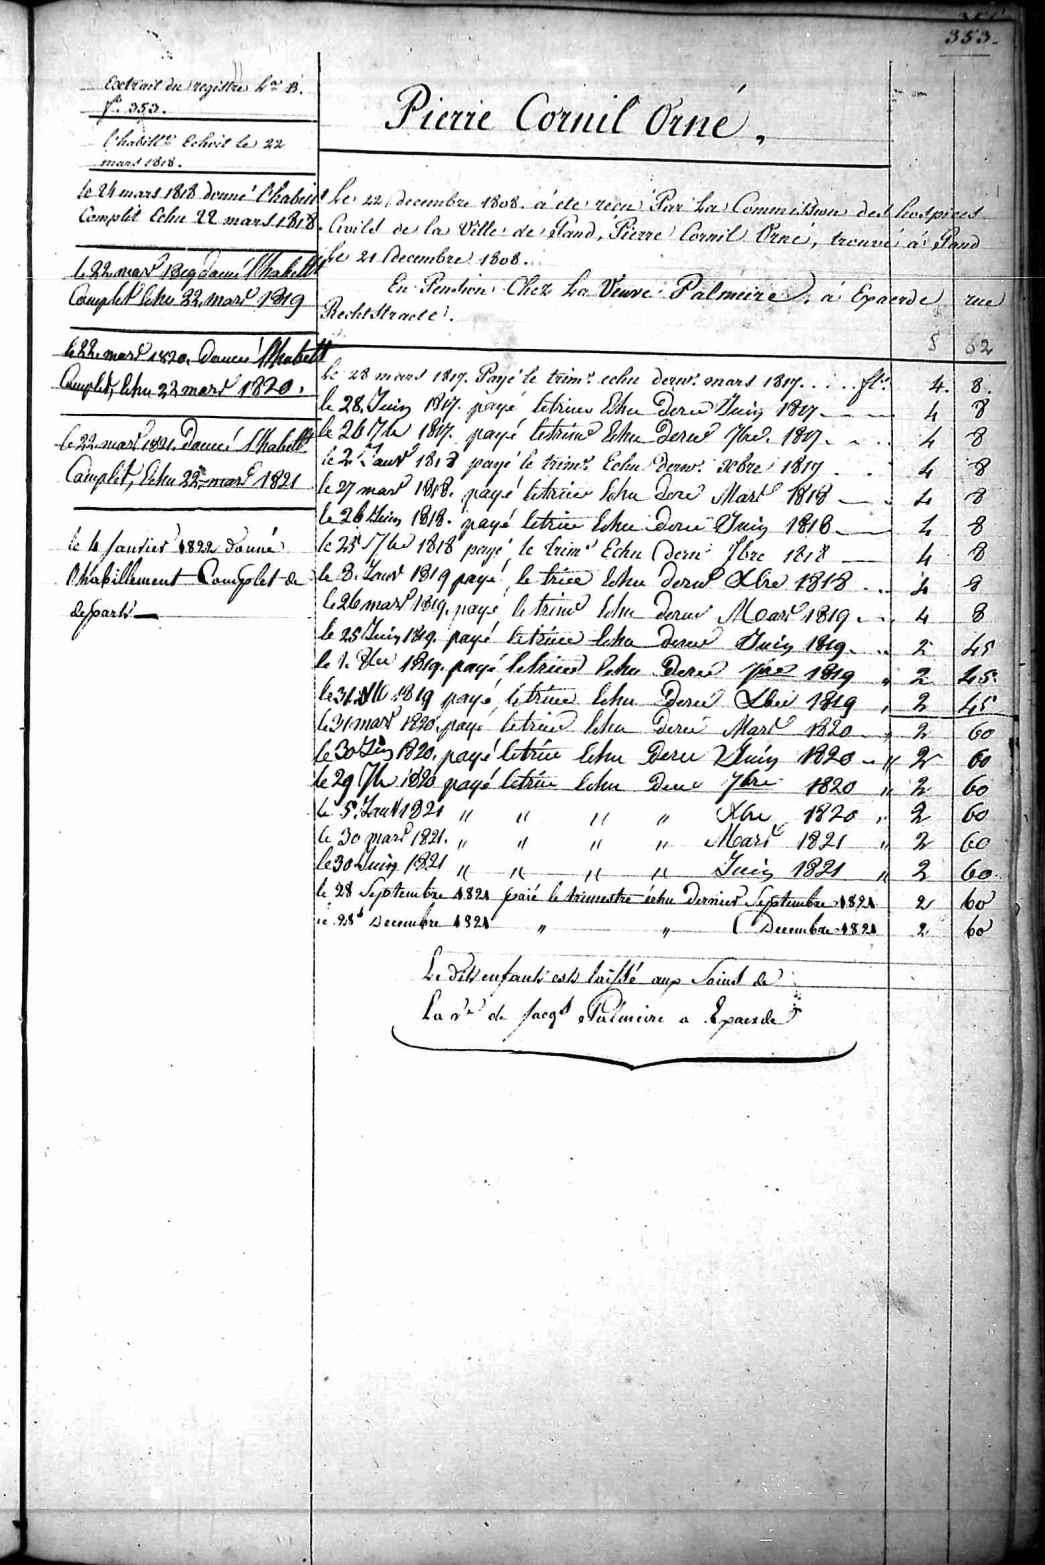 353.
Extrait du registre L.ra B.
f.o 353.
l'habill.nt Echoit le 22
mars 1818.
le 24 mars 1818 donné l'habill.t
Complet Echu 22 mars 1818.
le 22 mars 1819 donné l'habill.t
Complet Echu 22 mars 1819
le 22 mars 1820. Donné l'habill.t
Complet, Echu 22 mars 1820.
le 22 mars 1821. Donné l'habill.t
Complet, Echu 22 mars 1821
le 4 Janvier 1822 donné
l'habillement Complet de
départ —
Pierre Cornil Orné,
Le 22 decembre 1808. a été reçu Par La Commission des hospices
Civils de la Ville de Gand, Pierre Cornil Orné, trouvé á Gand
Le 21 decembre 1808.
En Pension Chez La Veuve Palmeire, á Exaerde, rue
Rechtstracte.
5 62
Le 28 mars 1817. Payé le trim.e echu dern.r mars 1817. . . . fl.s 4. 8.
le 28. Juin 1817. payé le trim Echu Dern Juin 1817 — 4 8
le 26 7bre 1817. payé le trim Echu Dern 7bre. 1817. . . 4 8
le 2 Janv 1818 payé le trim.e Echu dern.r xbre 1817 . . . 4 8
le 27 mars 1818. payé le trim Echu dern Mars 1818 — 4 8
le 26 Juin 1818. payé le trim Echu dern Juin 1818 — 4 8
le 25 7bre 1818 payé le trim.e Echu dern 7bre 1818 — 4 8
le 8. Janv 1819 payé le trim Echu dern Xbre 1818 . . 4 8
le 26 mars 1819. payé le trim Echu dern Mars 1819 . . . 4 8
le 25 Juin 1819. payé le trim Echu dern Juin 1819. . . 2 45
le 1. 8bre 1819. payé le trim Echu Dern 7bre 1819 " 2 45.
le 31 Xbre 1819 payé le trim Echu Dern Xbre 1819 , 2 45
le 31 mars 1820. payé le trim Echu dern Mars 1820 — " 2 60
le 30 Juin 1820. payé le trim Echu Dern Juin 1820 — " 2 60
le 29 7bre 1820 payé le trim Echu Dern 7bre 1820 " 2 60
le 5. Janv 1821 " " " " Xbre 1820 " 2 60
le 30 mars 1821. " " " " Mars 1821 " 2 60
le 30 Juin 1821 " " " " Juin 1821 " 2 60.
le 28 Septembre 1821 paié le trimestre échu dernier Septembre 1821 2 60
le 28 Decembre 1821 " " Decembre 1821 2 60
Le dit enfant est laissé aux Soins de
La v.e de Jacq.s Palmeire a Exaerde